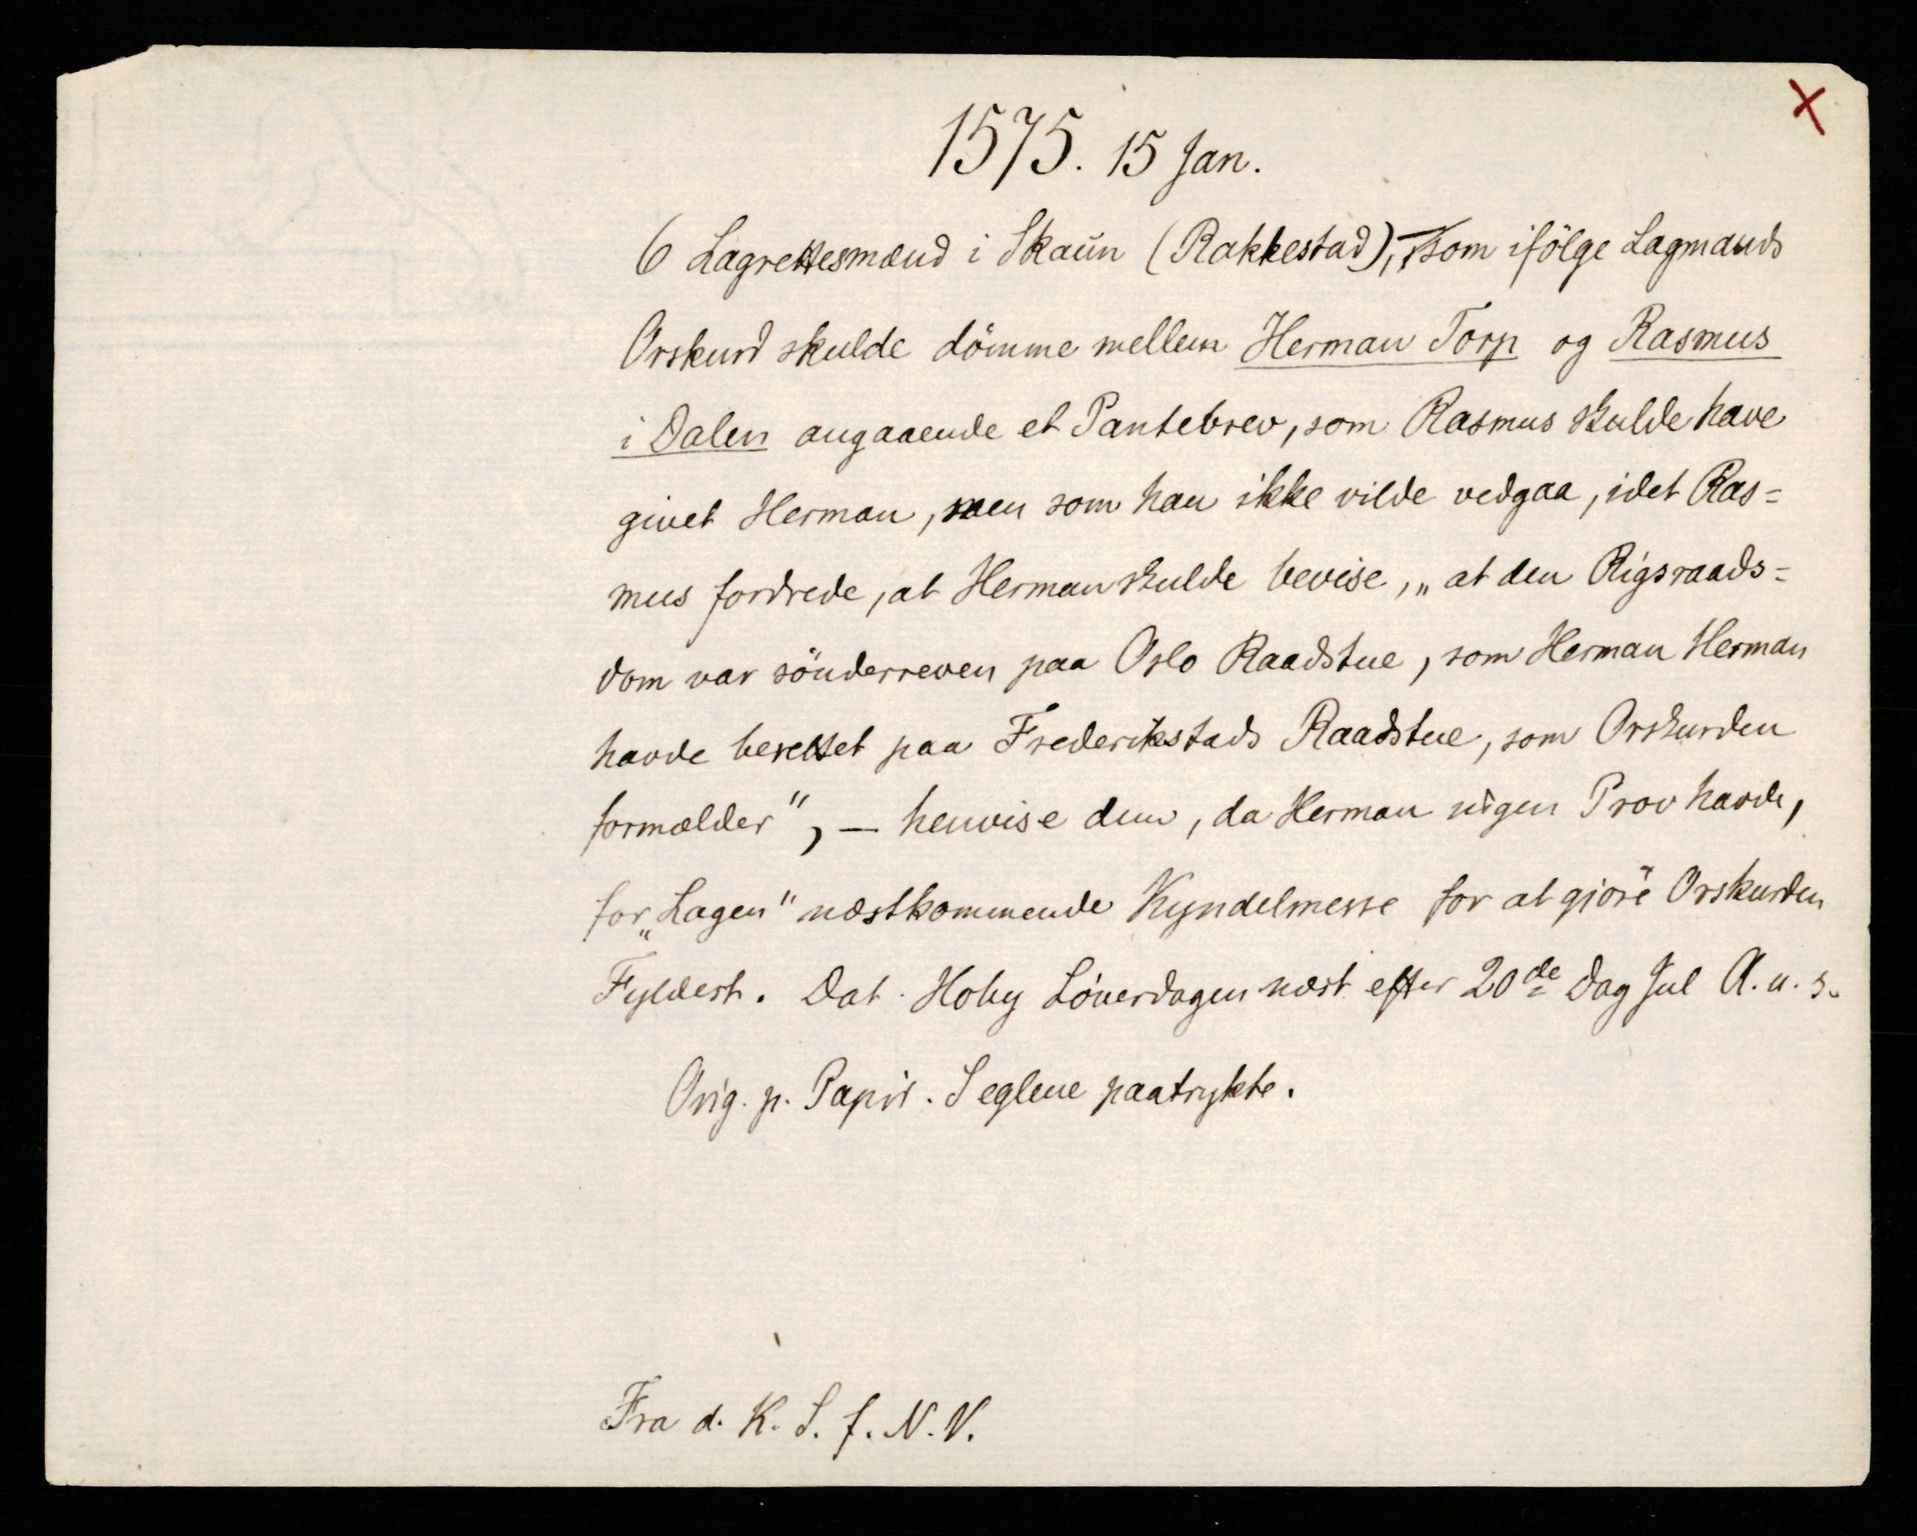 1575. 15 Jan.
6 Lagrettesmænd i Skaun (Rakkestad), som ifölge Lagmands
Orskurd skulde dömme mellem Herman Torp og Rasmus
i Dalen angaaende et Pantebrev, som Rasmus skulde have
givet Herman, men som han ikke vilde vedgaa, idet Ras=
mus fordrede, at Herman skulde bevise, „at den Rigsraads=
dom var sönderreven paa Oslo Raadstue, som Herman Herman
havde berettet paa Frederikstads Raadstue, som Orskurden
formælder", — henvise dem, da Herman ingen Prov havde,
for „Lagen" næstkommende Kyndelmesse for at gjöre Orskurden
Fyldest. Dat. Hoby Löverdagen næst efter 20de Dag Jul A. u. s.
Orig. p. Papir. Seglene paatrykte.
Fra d. K. S. f. N. V.